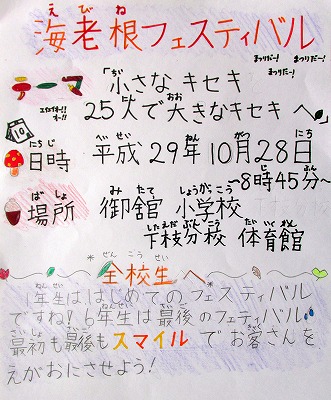 えびね
海老根フェスティバル
まつりだー! まつりだー!
まつりだー!
テーマ 「小さなキセキ
25人で大きなキセキへ」
日時 平成29年10月28日
~8時45分~
場所 御舘小学校
下枝分校 体育館
全校生へ
1年生ははじめてのフェスティバル
ですね!6年生は最後のフェティバル。
最初も最後もスマイルでお客さんを
えがおにさせよう!